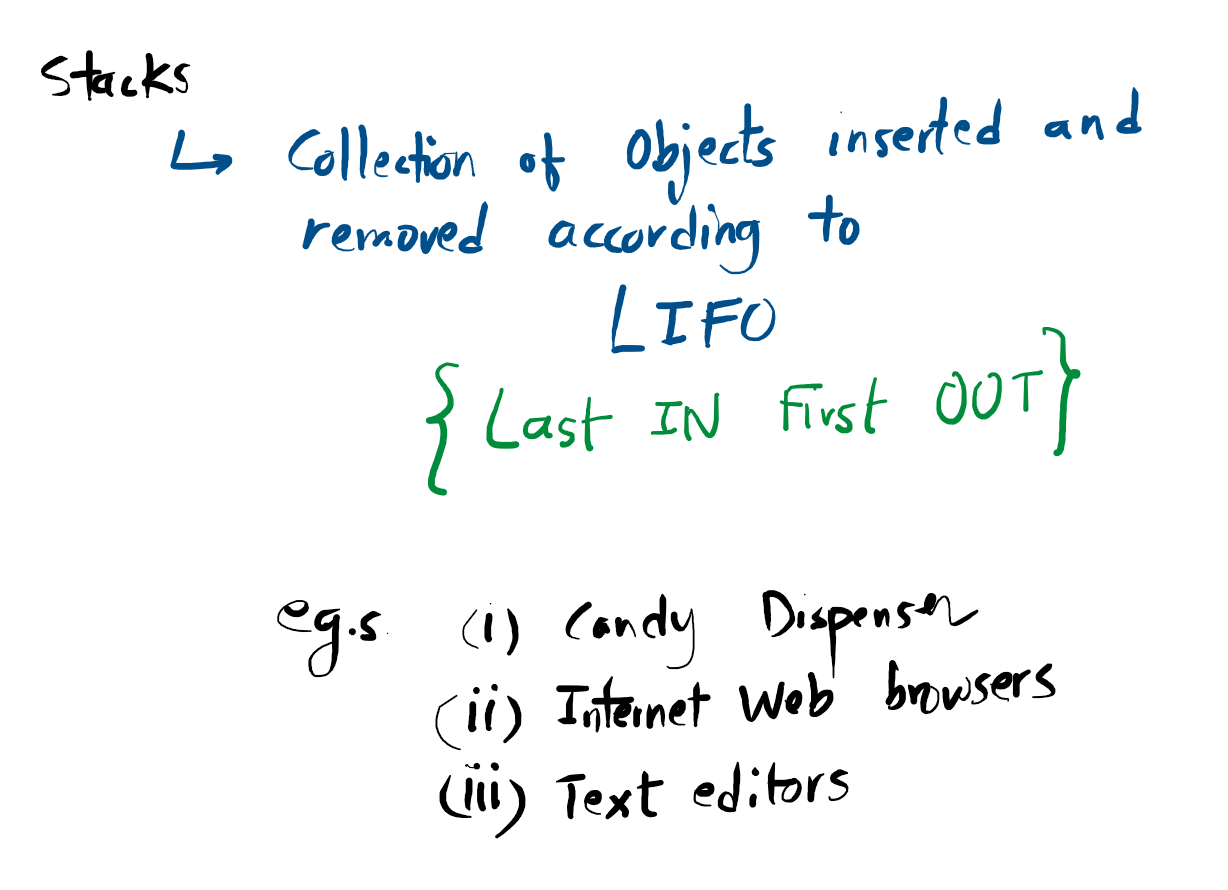 Stacks
↳ Collection of Objects inserted and
removed according to
LIFO
{ Last IN First OUT }
eg.s (i) Candy Dispenser
(ii) Internet Web browsers
(iii) Text editors